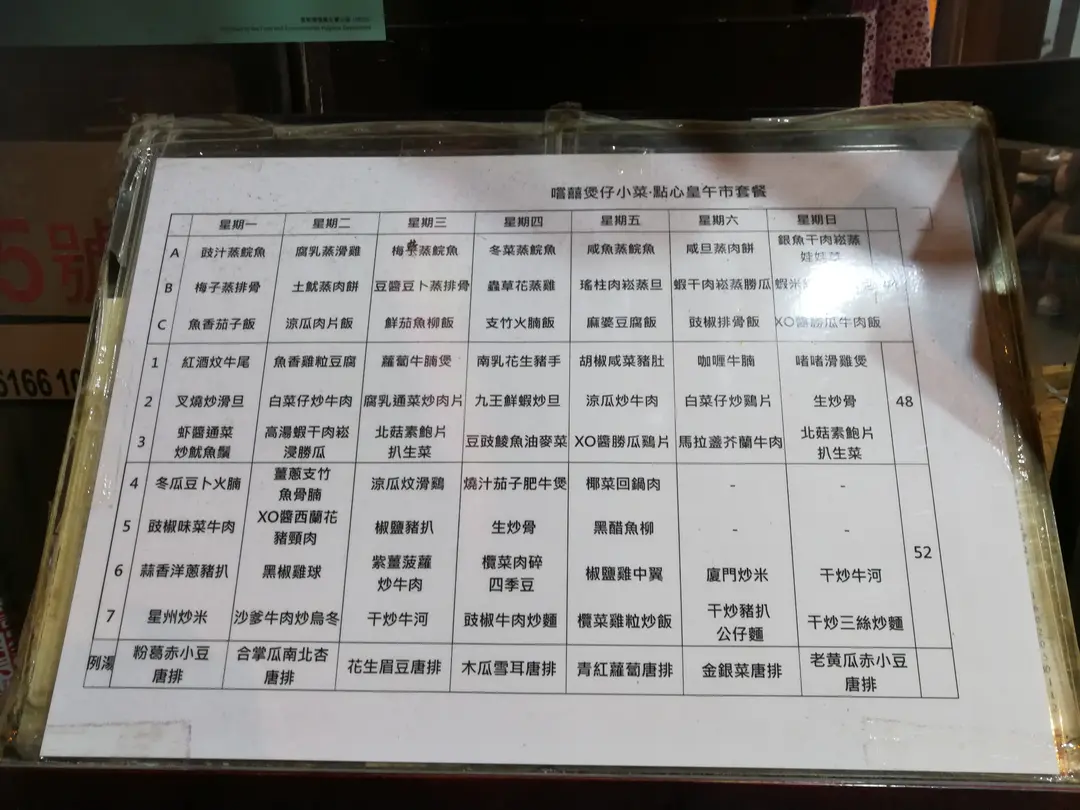 嚐囍煲仔小菜·點心皇午市套餐
星期一 星期二 星期三 星期四 星期五 星期六 星期日
A 豉汁蒸鯇魚 腐乳蒸滑雞 梅菜蒸鯇魚 冬菜蒸鯇魚 咸魚蒸鯇魚 咸旦蒸肉餅 銀魚干肉崧蒸
娃娃菜
B 梅子蒸排骨 土魷蒸肉餅 豆醬豆卜蒸排骨 蟲草花蒸雞 瑤柱肉崧蒸旦 蝦干肉崧蒸勝瓜 蝦米
C 魚香茄子飯 涼瓜肉片飯 鮮茄魚柳飯 支竹火腩飯 麻婆豆腐飯 豉椒排骨飯 XO醬勝瓜牛肉飯
1 紅酒炆牛尾 魚香雞粒豆腐 蘿蔔牛腩煲 南乳花生豬手 胡椒咸菜豬肚 咖喱牛腩 啫啫滑雞煲
2 叉燒炒滑旦 白菜仔炒牛肉 腐乳通菜炒肉片 九王鮮蝦炒旦 涼瓜炒牛肉 白菜仔炒鷄片 生炒骨 48
3 虾醬通菜
炒魷魚鬚 高湯蝦干肉崧
浸勝瓜 北菇素鮑片
扒生菜 豆豉鯪魚油麥菜 XO醬勝瓜鷄片 馬拉盞芥蘭牛肉 北菇素鮑片
扒生菜
4 冬瓜豆卜火腩 薑蔥支竹
魚骨腩 涼瓜炆滑鷄 燒汁茄子肥牛煲 椰菜回鍋肉 - -
5 豉椒味菜牛肉 XO醬西蘭花
豬頸肉 椒鹽豬扒 生炒骨 黑醋魚柳 - - 52
6 蒜香洋蔥豬扒 黑椒雞球 紫薑菠蘿
炒牛肉 欖菜肉碎
四季豆 椒鹽雞中翼 廈門炒米 干炒牛河
7 星州炒米 沙爹牛肉炒烏冬 干炒牛河 豉椒牛肉炒麵 欖菜雞粒炒飯 干炒豬扒
公仔麵 干炒三絲炒麵
例湯 粉葛赤小豆
唐排 合掌瓜南北杏
唐排 花生眉豆唐排 木瓜雪耳唐排 青紅蘿蔔唐排 金銀菜唐排 老黄瓜赤小豆
唐排
5號
6166 10